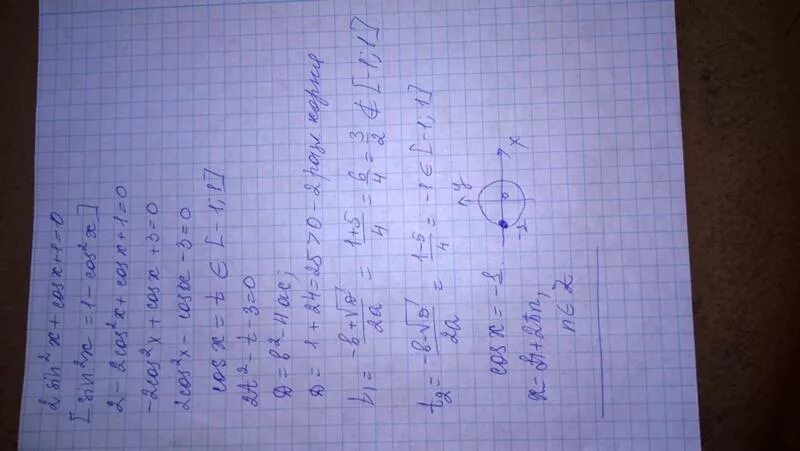 2 sin²x + cosx + 1 = 0
[sin²x = 1 - cos²x]
2 - 2cos²x + cosx + 1 = 0
-2cos²x + cosx + 3 = 0
2cos²x - cosx - 3 = 0
cosx = t ∈ [-1; 1]
2t² - t - 3 = 0
D = b² - 4ac;
D = 1 + 24 = 25 > 0 - 2 разл корня
t₁ = (-b + √D)/2a = (1+5)/4 = 6/4 = 3/2 ∉ [-1; 1]
t₂ = (-b - √D)/2a = (1-5)/4 = -1 ∈ [-1; 1]
cosx = -1
x = π + 2πn,
n ∈ Z
y
x
-1
0